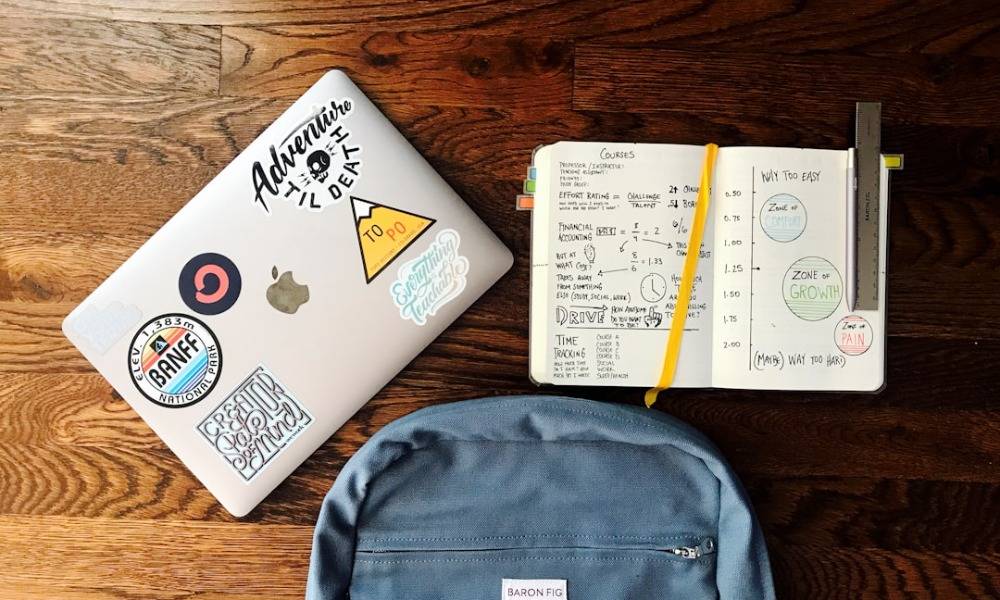 Adventure
TIL DEATH
TO
PO
Everything
Teachable
ELEV. 1,383m
BANFF
NATIONAL PARK
CREATOR
State
of Mind
COURSES
PROFESSOR / INSTRUCTOR:
TEACHING ASSISTANT:
FRIENDS:
STUDY GROUP:
EFFORT RATING = CHALLENGE
TALENT
FINANCIAL
ACCOUNTING
= 8
4
= 2
BUT AT
WHAT COST?
8
6
= 1.33
TAKES AWAY
FROM SOMETHING
ELSE (STUDY, SOCIAL, WORK)
DRIVE
HOW AWESOME
DO YOU WANT
TO BE?
TIME
TRACKING
COURSE A
COURSE B
COURSE C
COURSE D
SOCIAL
WORK
SLEEP/HEALTH
WAY TOO EASY
0.50
0.75
1.00
1.25
1.50
1.75
2.00
ZONE OF
COMFORT
ZONE OF
GROWTH
ZONE OF
PAIN
(MAYBE) WAY TOO HARD
BARON FIG